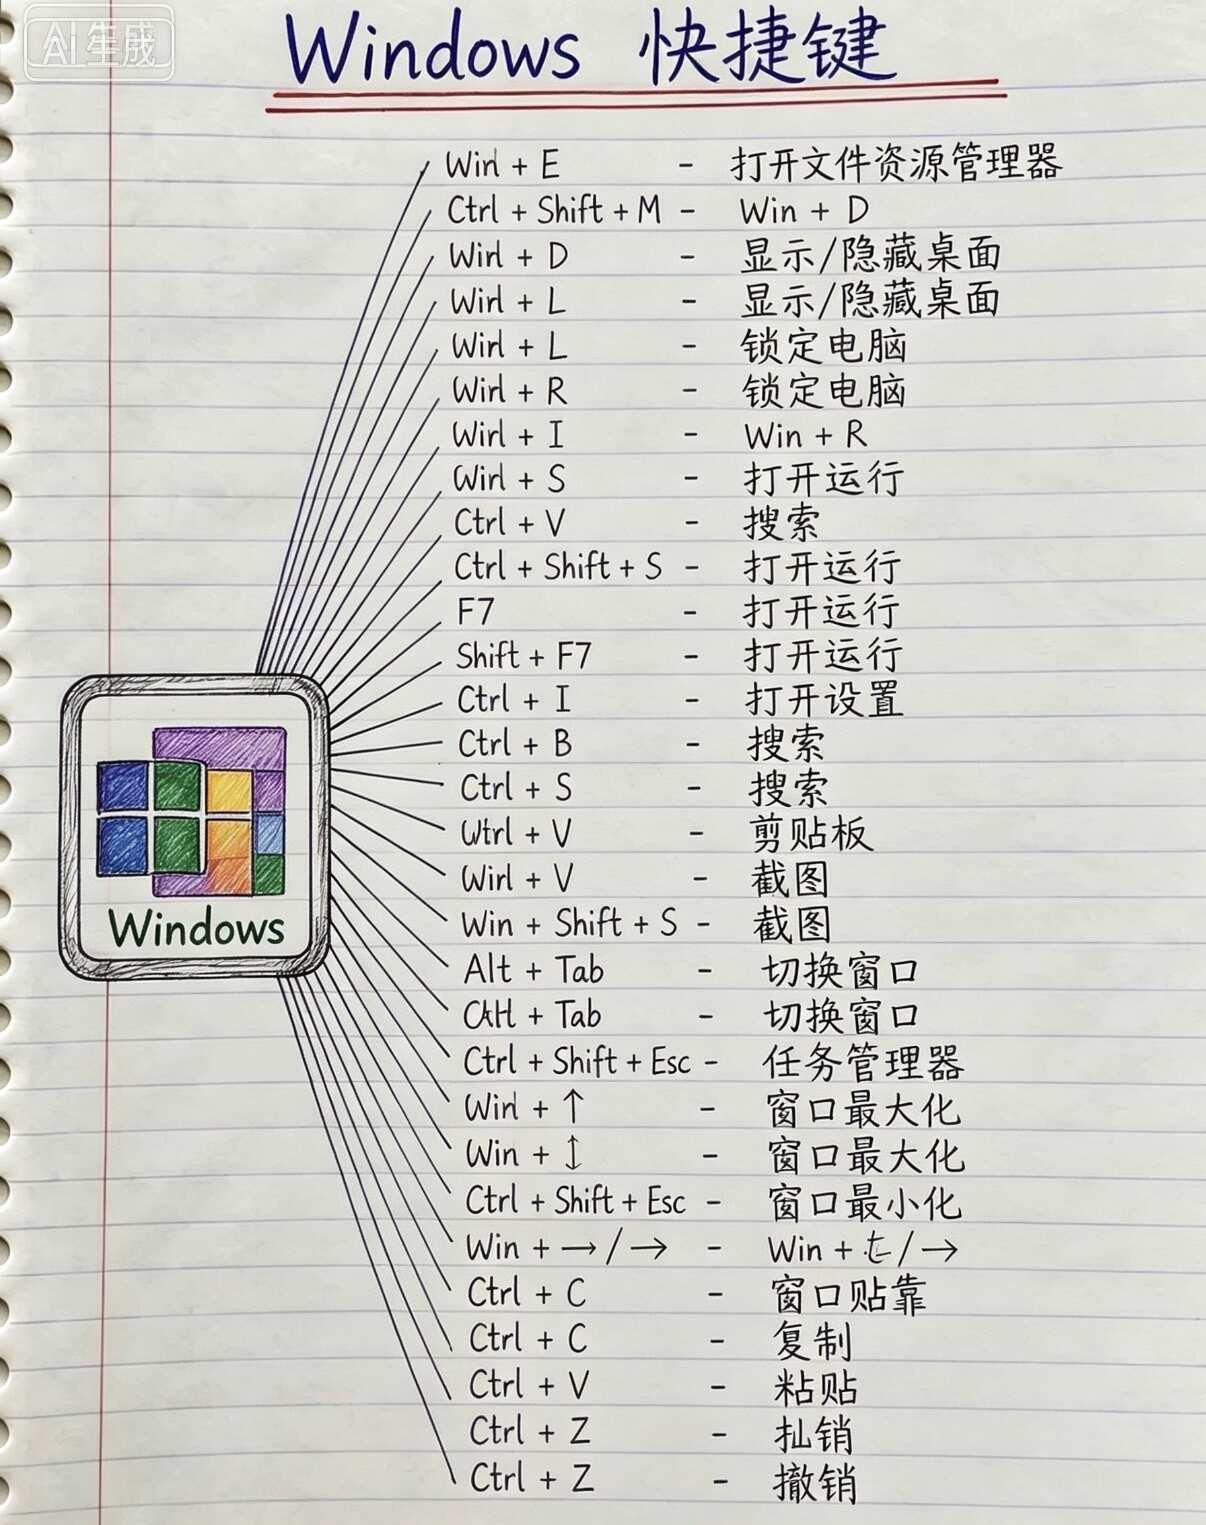 AI生成
Windows 快捷键
Win + E - 打开文件资源管理器
Ctrl + Shift + M - Win + D
Wirl + D - 显示/隐藏桌面
Wirl + L - 显示/隐藏桌面
Wirl + L - 锁定电脑
Wirl + R - 锁定电脑
Wirl + I - Win + R
Wirl + S - 打开运行
Ctrl + V - 搜索
Ctrl + Shift + S - 打开运行
F7 - 打开运行
Shift + F7 - 打开运行
Ctrl + I - 打开设置
Ctrl + B - 搜索
Ctrl + S - 搜索
Wtrl + V - 剪贴板
Wirl + V - 截图
Win + Shift + S - 截图
Alt + Tab - 切换窗口
+ Tab - 切换窗口
Ctrl + Shift + Esc - 任务管理器
Win + ↑ - 窗口最大化
Win + ↕ - 窗口最大化
Ctrl + Shift + Esc - 窗口最小化
Win + → / → - Win + / →
Ctrl + C - 窗口贴靠
Ctrl + C - 复制
Ctrl + V - 粘贴
Ctrl + Z - 扯销
Ctrl + Z - 撤销
Windows